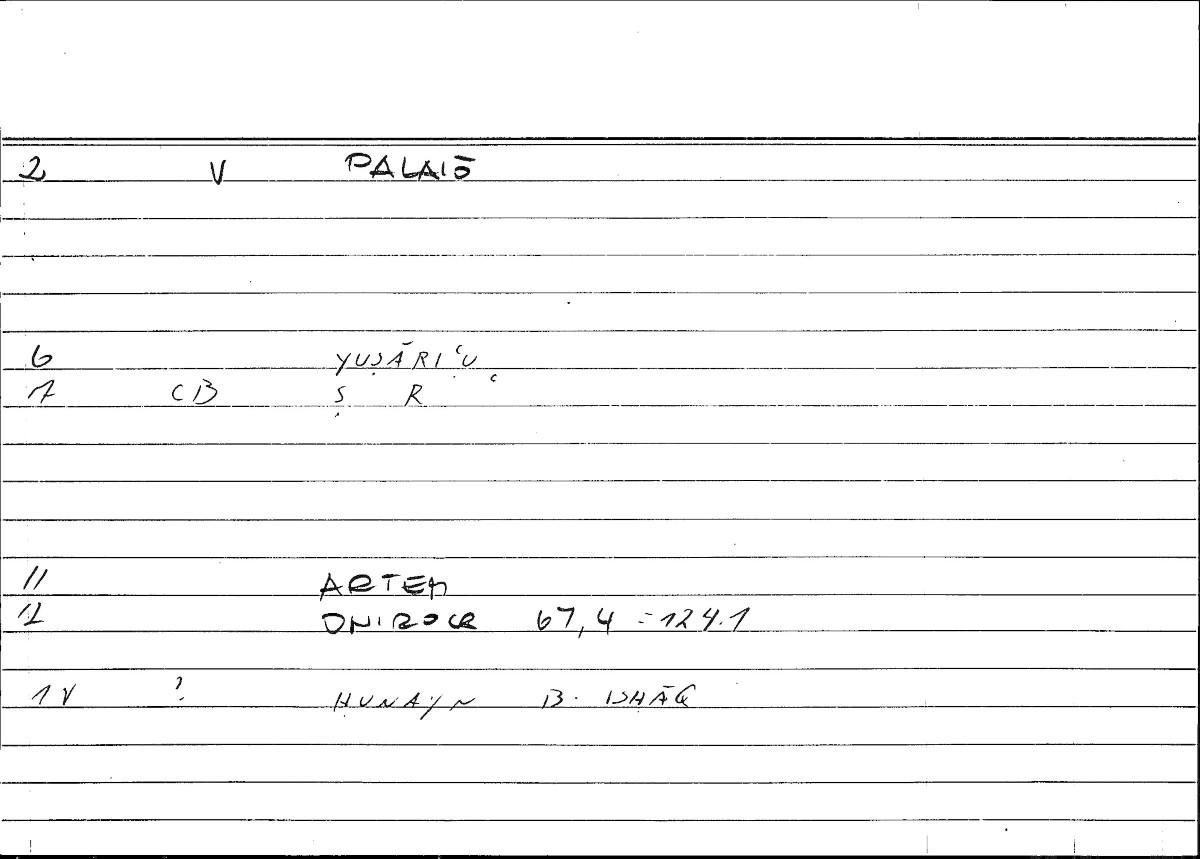 2 V PALAIŌ
6 YUṢĀRIʿU
7 CB Ṣ R ʿ
11 ARTEM
12 ONIROCR 67,4 = 124.1
14 ? ḤUNAYN B. ISḤĀQ